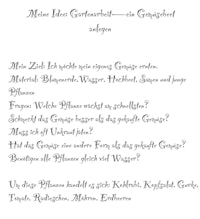 Meine Idee: Gartenarbeit----ein Gemüsebeet
anlegen
Mein Ziel: Ich möchte mein eigenes Gemüse ernten.
Material: Blumenerde, Wasser, Hochbeet, Samen und junge
Pflanzen
Fragen: Welche Pflanze wächst am schnellsten?
Schmeckt das Gemüse besser als das gekaufte Gemüse?
Muss ich oft Unkraut jäten?
Hat das Gemüse eine andere Form als das gekaufte Gemüse?
Benötigen alle Pflanzen gleich viel Wasser?
Um diese Pflanzen handelt es sich: Kohlrabi, Kopfsalat, Gurke,
Tomate, Radieschen, Möhren, Erdbeeren